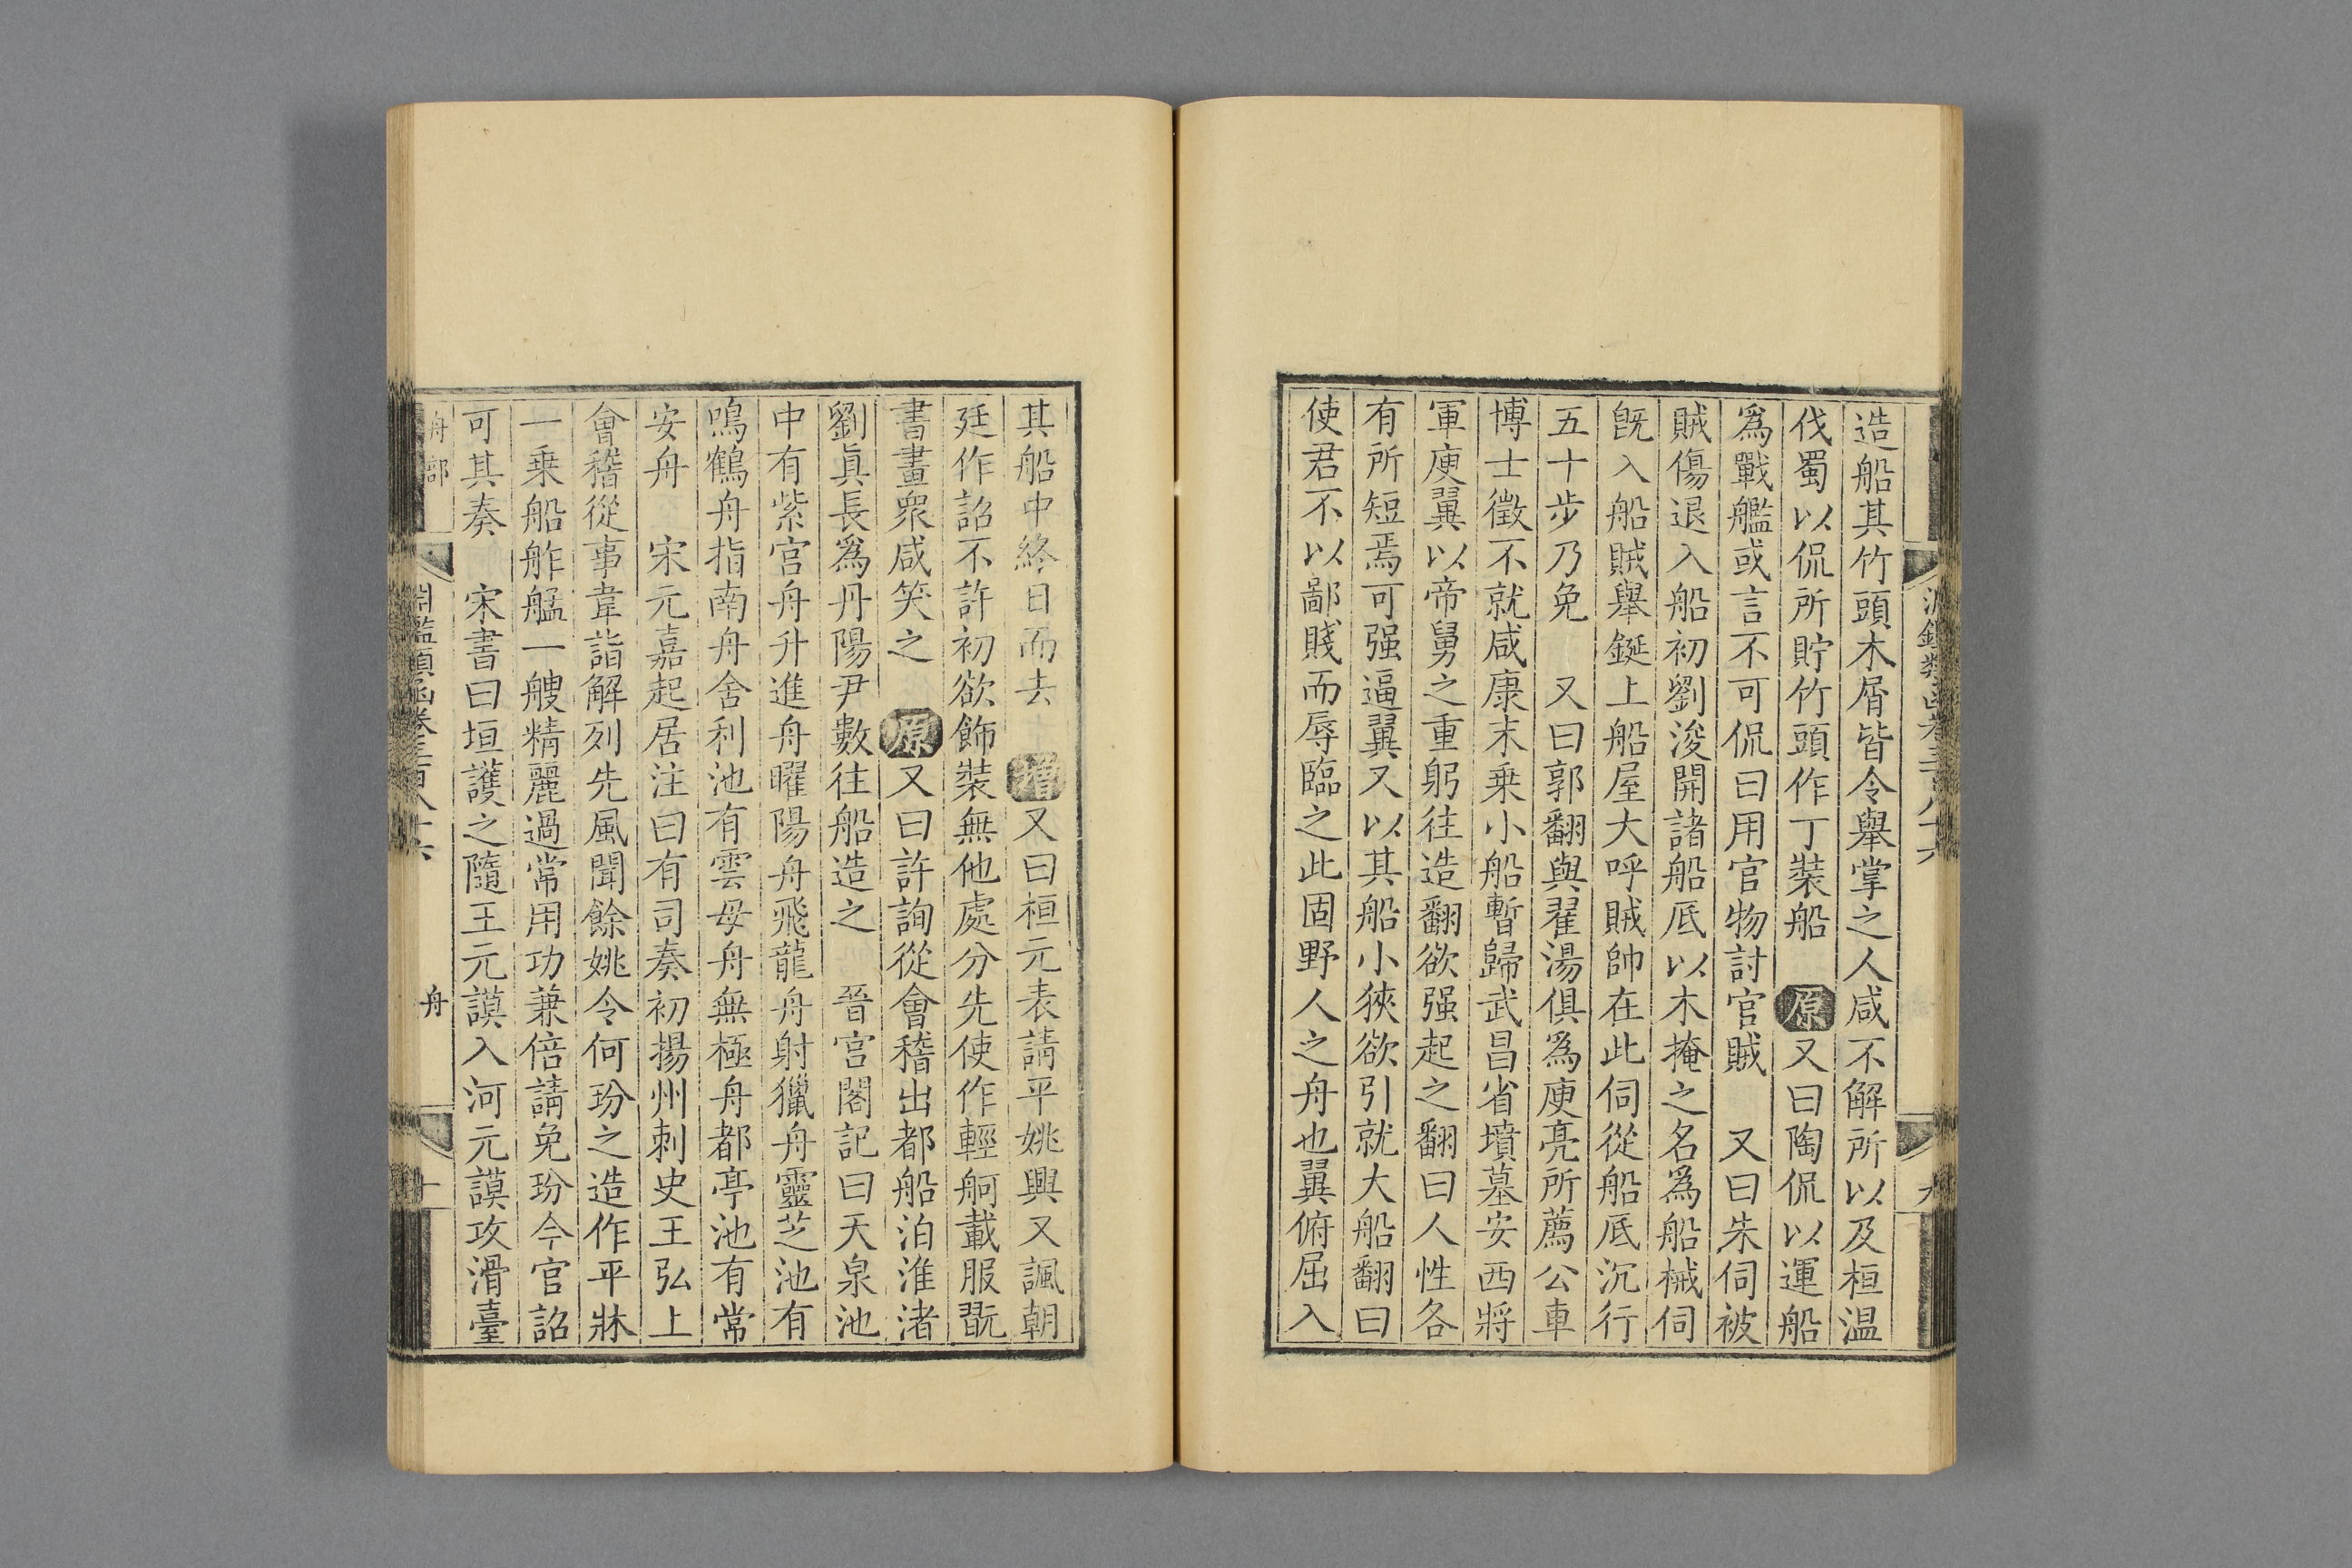 造船其竹頭木屑皆令舉掌之人咸不解所以及桓温
伐蜀以侃所貯竹頭作丁裝船　原又曰陶侃以運船
爲戰艦或言不可侃曰用官物討官賊　又曰朱伺被
賊傷退入船初劉浚開諸船底以木掩之名爲船械伺
旣入船賊舉鋋上船屋大呼賊帥在此伺從船底沉行
五十步乃免　又曰郭翻與翟湯俱爲庾亮所薦公車
博士徵不就咸康末乗小船暫歸武昌省墳墓安西將
軍庾翼以帝舅之重躬往造翻欲强起之翻曰人性各
有所短焉可强逼翼又以其船小狹欲引就大船翻曰
使君不以鄙賤而辱臨之此固野人之舟也翼俯屈入
其船中終日而去　增又曰桓元表請平姚興又諷朝
廷作詔不許初欲飾裝無他處分先使作輕舸載服翫
書畫衆咸笑之　原又曰許詢從會稽出都船泊淮渚
劉眞長爲丹陽尹數往船造之　晉宮閣記曰天泉池
中有紫宮舟升進舟曜陽舟飛龍舟射獵舟靈芝池有
鳴鶴舟指南舟舍利池有雲母舟無極舟都亭池有常
安舟　宋元嘉起居注曰有司奏初揚州刺史王弘上
會稽從事韋詣解列先風聞餘姚令何玢之造作平牀
一乗船舴艋一艘精麗過常用功兼倍請免玢今官詔
可其奏　宋書曰垣護之隨王元謨入河元謨攻滑臺
舟部
淵鑑類函卷三百八十六
舟